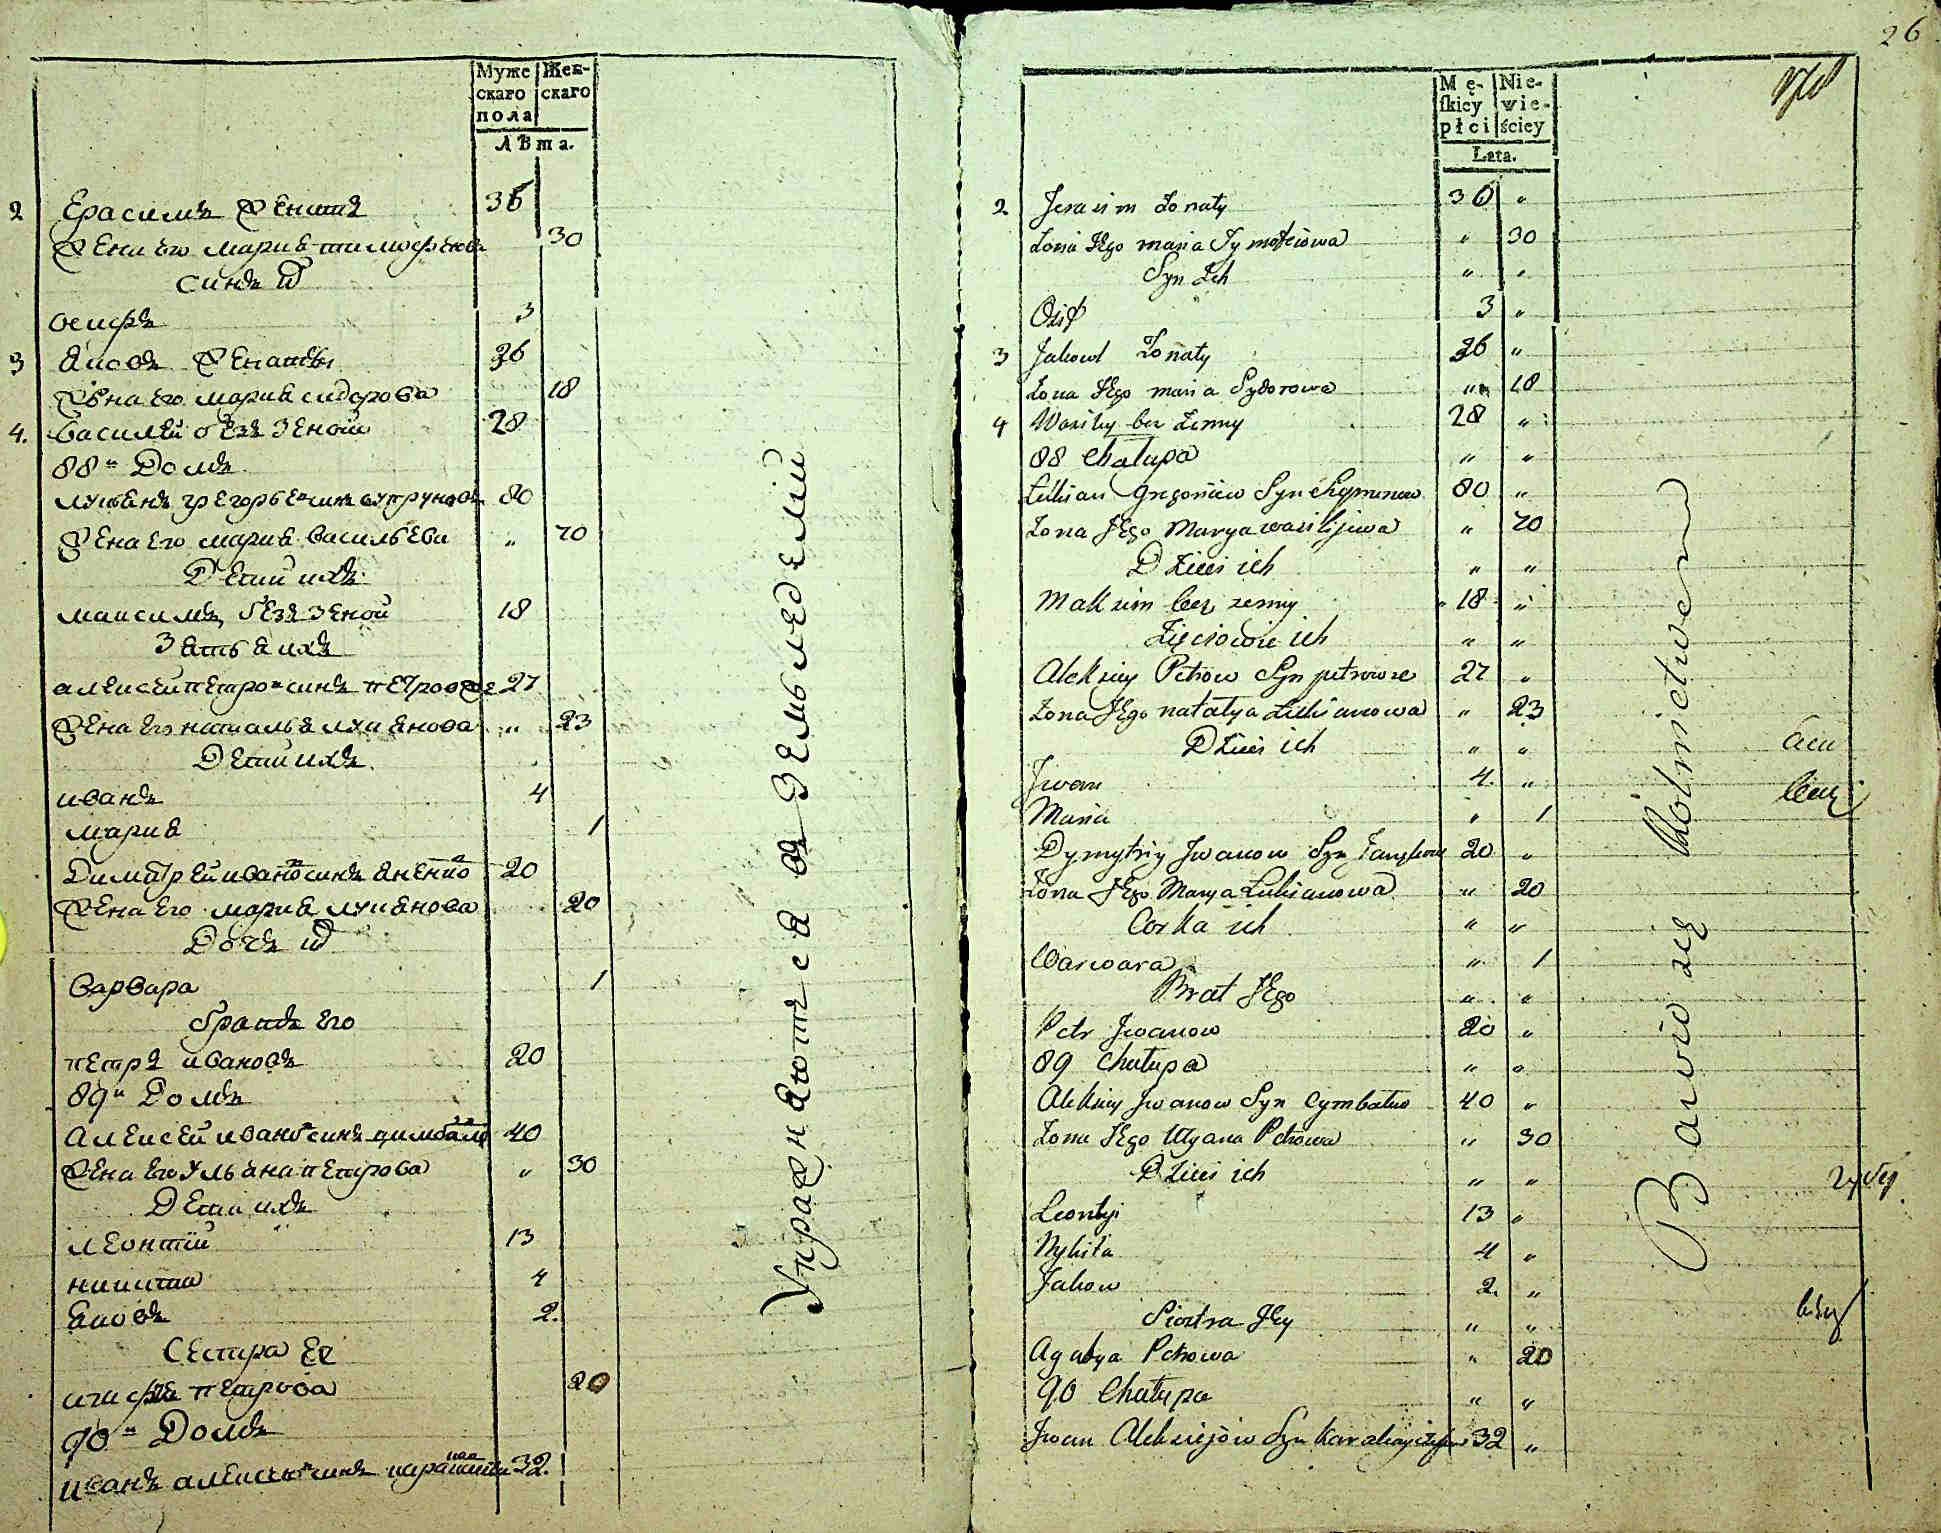 26
Муже
скаго
пола
Жен-
скаго
Лѣта.
2 Ерасимъ Женатъ 36
Жена его мариа тимофеева 30
Синъ их
осифъ 3
3 Яковъ Женатъ 26
Жена его мариа сидорова 18
4. Василей безъ Зеной 28
88 " Домъ
лукианъ григорьевъ синъ супруновъ 80
Жена его мариа васильева " 70
Дети ихъ
максимъ, безъ Зеной 18
Зятья ихъ
алексей петровъ синъ 27
Жена его наталья лукианова " 23
Дети ихъ
иванъ 4
мариа 1
Димитрей ивановъ синъ 20
Жена его мариа лукианова 20
Дочь их
варвара 1
братъ его
петръ ивановъ 20
89 " Домъ
Алексей ивановъ синъ цимбалъ 40
Жена его Ульяна петрова " 30
Дети ихъ
леонтий 13
никита 4
Яковъ 2.
Сестра ее
петрова 20
90 " Домъ
иванъ алексеевъ синъ 32.
Упражняютъся въ Земьледелии
Mę-
skiey
płci
Nie-
wie-
ściey
Lata.
2. Jerasim Żonaty 36 "
Żona Jego maria Tymofeiowa " 30
Syn Ich " "
Osif 3 "
3 Jakowl Żonaty 26 "
Żona Jego maria Sydorowa " 18
4 Wasiley bez Żenny 28 "
88 Chałupa " "
Lukian Grigoriew Syn Supronow 80 "
Żona Jego Marya wasilijewa " 70
Dzieci ich " "
Maksim bez żenny 18 "
Zięciowie ich " "
Aleksiey Petrow Syn 27 "
Żona Jego natalya Lukianowa " 23
Dzieci ich " "
Jwan 4. "
Maria " 1
Dymytriy Jwanow Syn 20 "
Żona Jego Marya Lukianowa " 20
Corka ich " "
Warwara " 1
Brat Jego " "
Petr Jwanow 20 "
89 Chałupa " "
Aleksiey Jwanow Syn Cymbałuw 40 "
Żona Jego Ulyana Petrowa " 30
Dzieci ich " "
Leontyi 13 "
Nykita 4 "
Jakow 2. "
Siostra Jey " "
Agabya Petrowa " 20
90 Chałupa " "
Jwan Aleksiejow Syn 32 "
Bawią się Rolnictwem